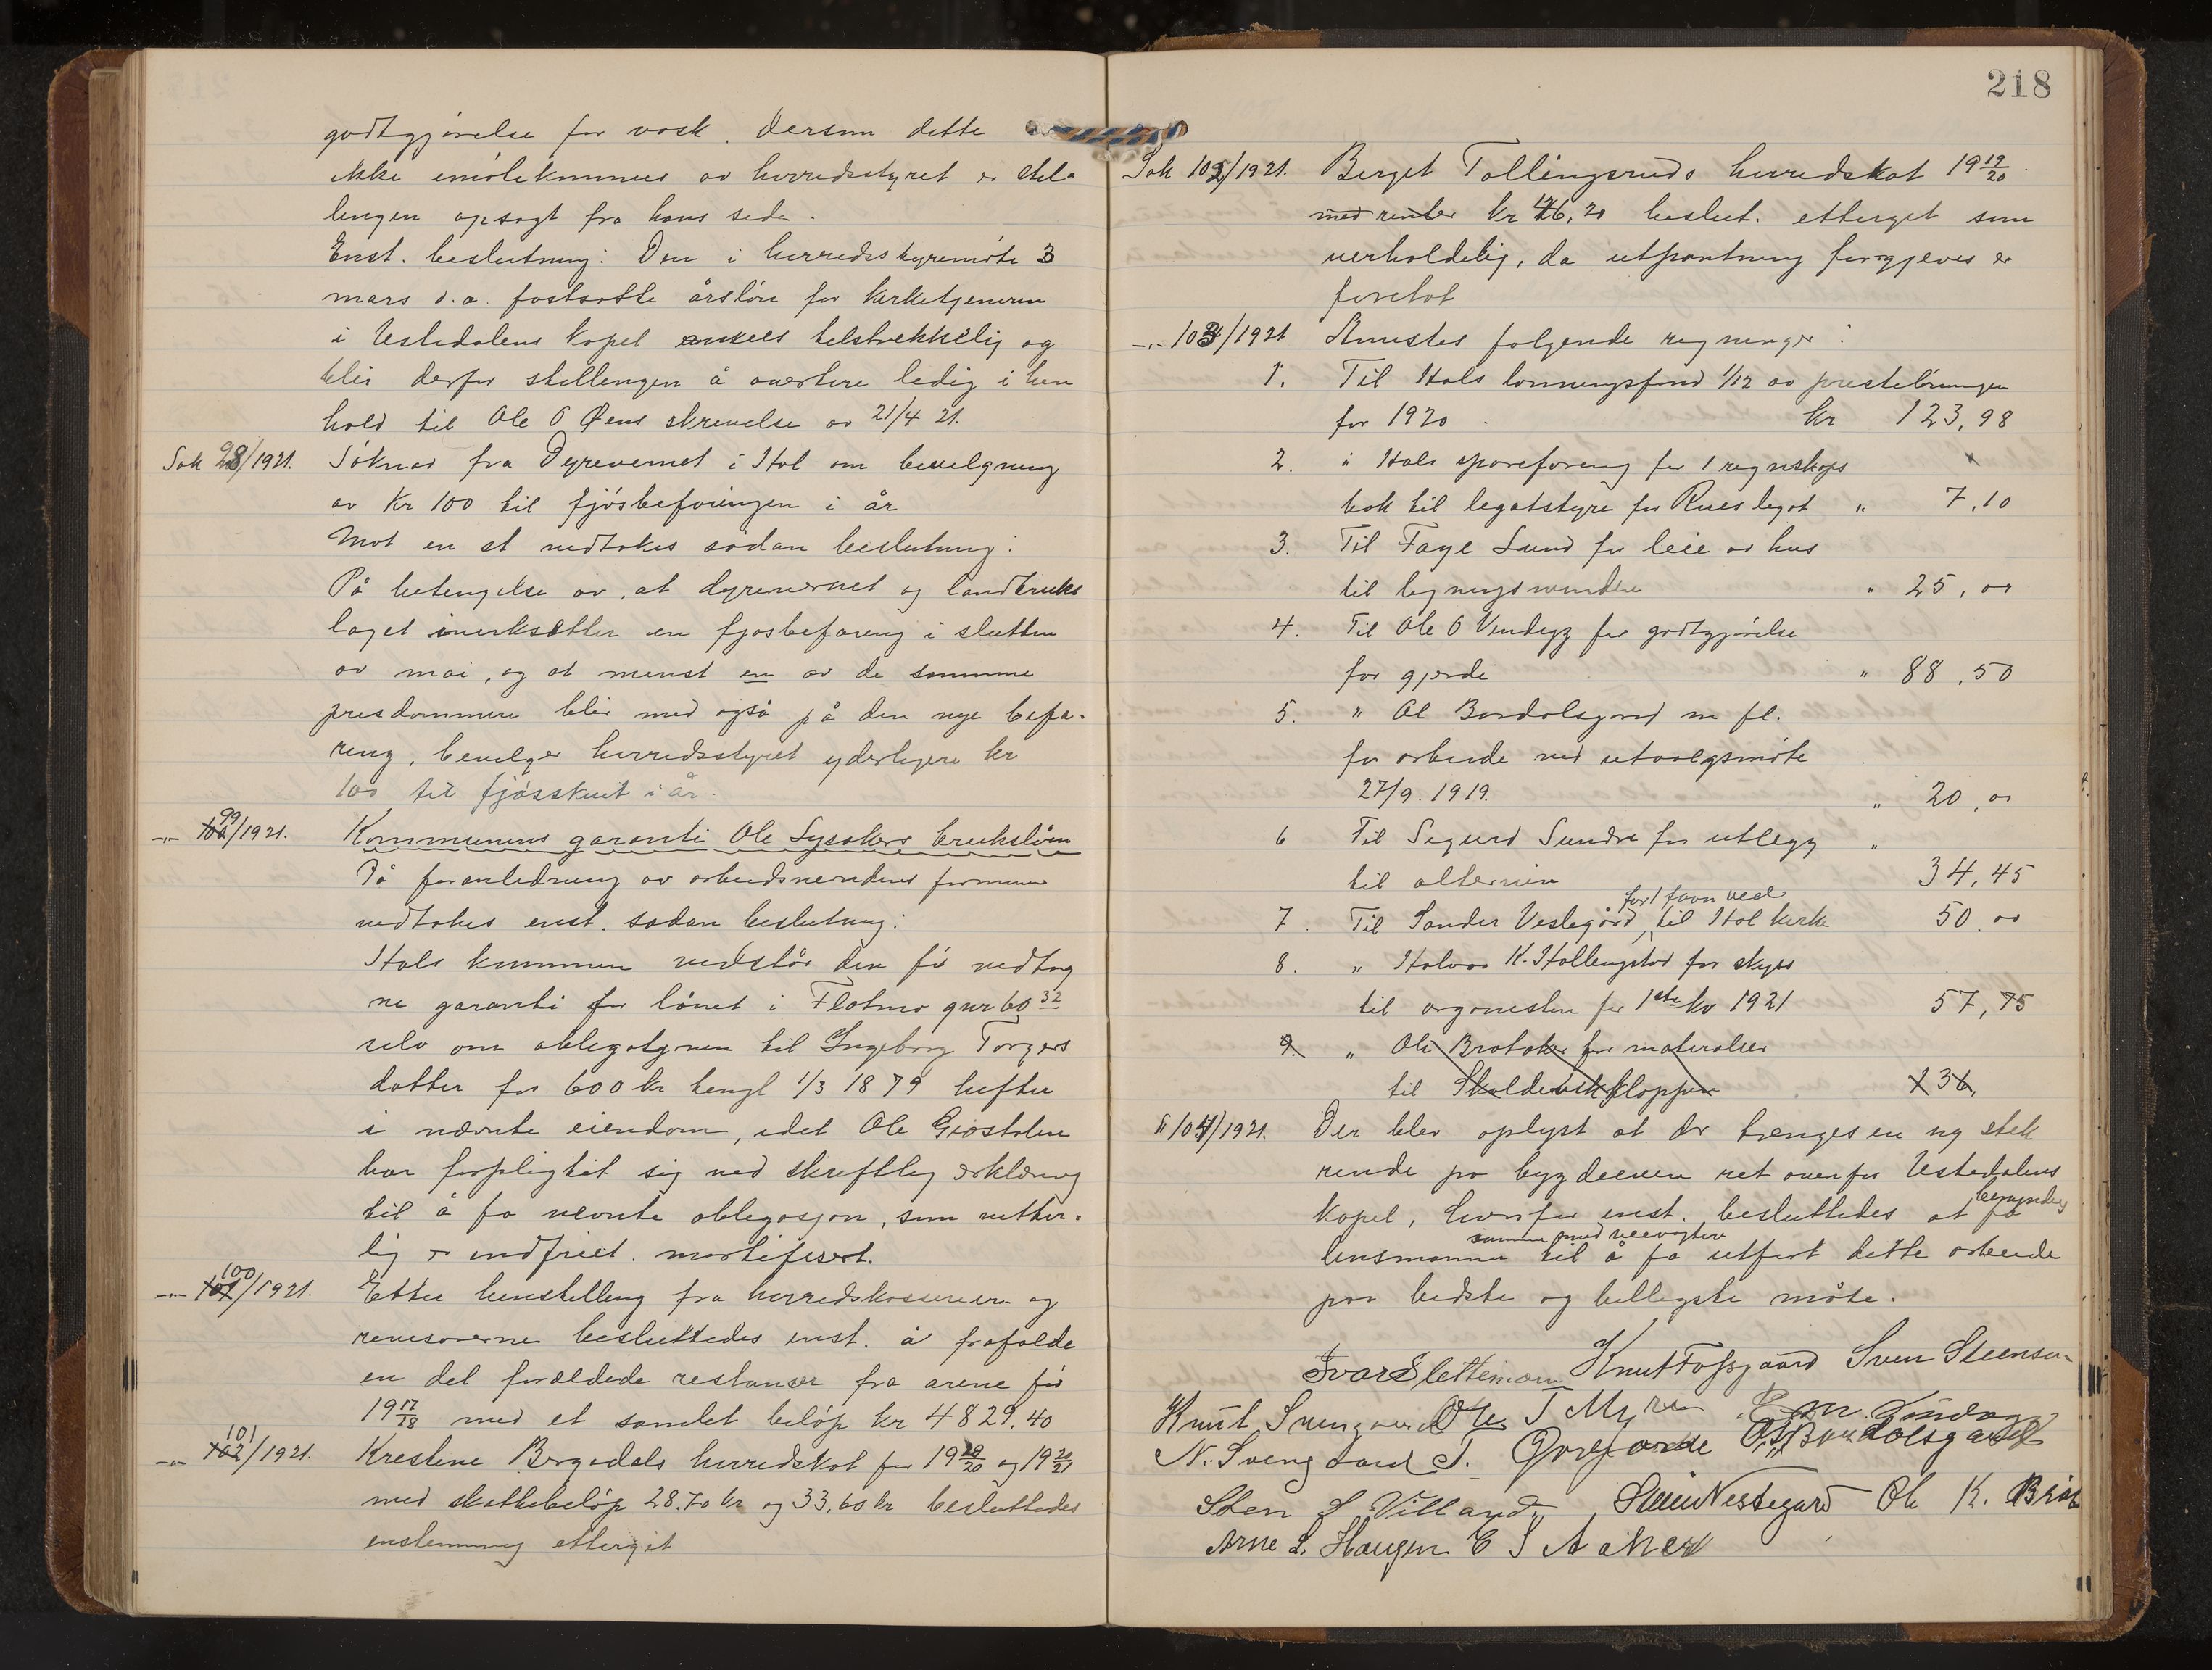 godtgjørelse for vask. Dersom dette
ikke imøtekommes av herredsstyret er stil-
lingen opsagt fra hans side.
Enst. beslutning: Den i herredsstyremøte 3
mars d.a. fastsatte årsløn for kirketjeneren
i Ustedalens kapel ansees tilstrekkelig og
blir derfor stillingen å avertere ledig i hen
hold til Ole O Øens skrivelse av 21/4 21.
Sak 98/1921. Søknad fra Dyrevernet i Hol om bevilgning
av Kr 100 til fjøsbefaringen i år
Mot en st vedtokes sådan beslutning:
På betingelse av, at dyrevernet og landbruks
laget iverksetter en fjøsbefaring i slutten
av mai, og at minst en av de samme
prisdommere blir med også på den nye befa-
ring, bevilger herredsstyret yderligere kr
100 til fjøsskuet i år.
-"- 99/1921. Kommunens garanti Ole Sysakers bruksløn
På foranledning av arbeidsnemdens formann
vedtokes enst. sådan beslutning:
Hols kommune vedstår den før vedtag
ne garanti for lånet i Flatmo gnr 60 32
selv om obligasjonen til Ingeborg Torgers
datter for 600 kr tingl 1/3 1879 hefter
i nævnte eiendom, idet Ole Geostølen
har forpligtet sig ved skriftlig erklæring
til å få nevnte obligasjon, som rettne-
lig er indfriet. mortifisert.
-"- 100/1921. Etter henstilling fra herredskassereren og
revisorerne besluttedes enst. å frafalde
en del foreldede restanser fra årene før
19 17/18 med et samlet beløp kr 4829.40
-"- 101/1921. Kristine Bergedals herredskat for 19 19/20 og 19 20/21
med skattebeløp 28.70 kr og 33,60 kr besluttedes
enstemmig ettergit
218
Sak 102/1921. Birgit Tollingsruds herredskat 19 19/20
med renter kr 26,20 beslut. ettergit som
uerholdelig, da utpantning forgjeves er
foretat
-"- 103/1921 Anvistes følgende regninger:
1. Til Hols lønningsfond 1/12 av prestelønningen
for 1920 kr 123,98
2. " Hols sparеforening for 1 regnskaps
bok til legatstyre for Rues legat " 7,10
3. Til Faye Lund for leie av hus
til ligningsnemden " 25,00
4. Til Ole O Vindegg for godtgjørelse
for gjerde " 88,50
5. " Ol Bardalsgard m fl.
for arbeide ved utvalgsmøte
27/9. 1919. " 20,00
6 Til Sigurd Sundre for utlegg "
til altervin 34,45
for 1 favn ved
7. Til Sander Veslegård, til Hol kirke 50.00
8. " Halvor K. Hallingstad for skyss
til organisten for 1ste kv 1921 57,75
9. " Ole Brataker for materialer
til Skoldeviskkloppen 136,
" 104/1921. Der blev oplyst at der trenges en ny stek
rende på bygdeveien ret overfor Ustedalens
kapel, hvorfor enst. besluttedes at få bemyndig
sammen med veivogteren
lensmannen til å få utført dette arbeide
på bedste og billigste måte.
Ivar Slettemoen Knut Fossgaard Sven Steensen
Knut Svengaard Ole T Myren
N. Svengaard T. Ol Bardalsgard
Sten S Villand. Svein Nestegard Ole K. Bråt
Arne L. Haugen E S Aaker